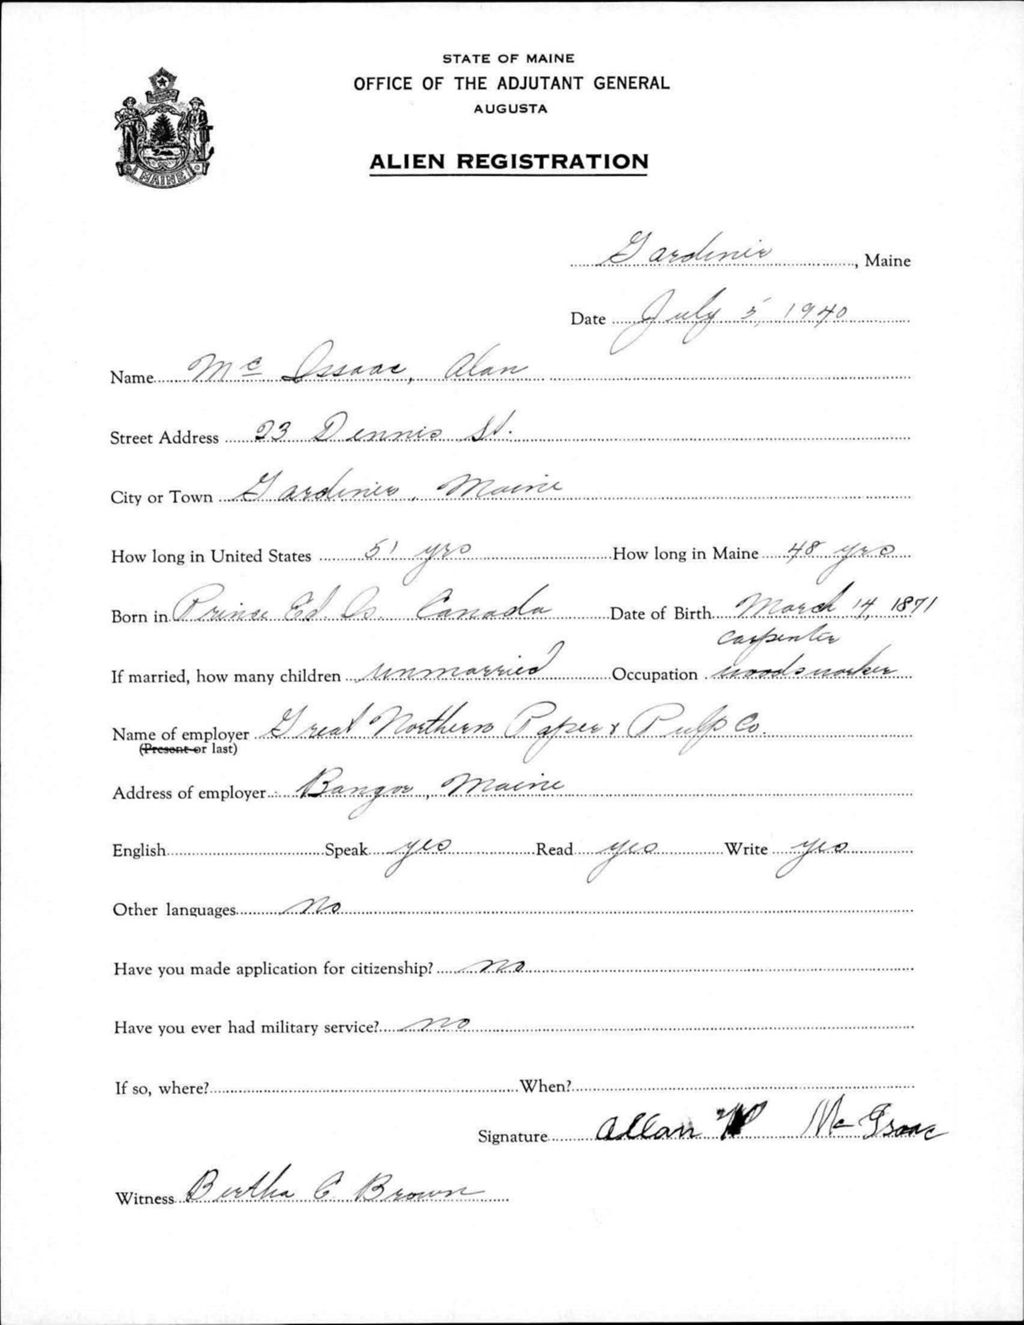 STATE OF MAINE
OFFICE OF THE ADJUTANT GENERAL
AUGUSTA
MAINE
ALIEN REGISTRATION
Gardiner, Maine
Date July 5, 1940
Name Mc Issaac, Alan
Street Address 23 Dennis St.
City or Town Gardiner, Maine
How long in United States 51 yrs How long in Maine 48 yrs
Born in Prince Ed. Is. Canada Date of Birth March 14, 1871
carpenter
If married, how many children unmarried Occupation woodsworker
Name of employer Great Northern Paper & Pulp Co.
(Present or last)
Address of employer Bangor, Maine
English Speak yes Read yes Write yes
Other languages No
Have you made application for citizenship? no
Have you ever had military service? no
If so, where? When?
Signature Allan Mc Isaac
Witness Bertha C Brown